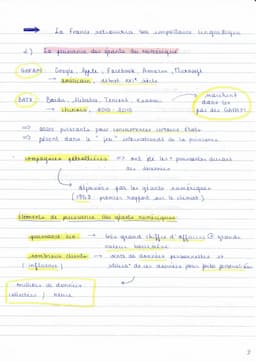 → La France retrouvera son importance linguistique
2) La puissance des géants du numérique
GAFAM: Google, Apple, Facebook, Amazon, Microsoft
→ américain, début XXIe siècle
BATX: Baidu, Alibaba, Tencent, Xiaomi
→ chinois, 2010-2020
marchent dans les pas des GAFAM
=> assez puissants pour concurrencer certains États
=> pèsent dans le "jeu" international de la puissance
compagnies pétrolières => ont été les + puissantes durant des décennies
→ dépassées par les géants numériques
(premier rapport sur le climat)
Éléments de puissance des géants numériques:
puissance éco → très grand chiffre d'affaires
valeur boursière
nombreux clients → vente de données personnelles et
(influence) utilise de ses données pour pubs personnalisées
milliers de données collectées
2